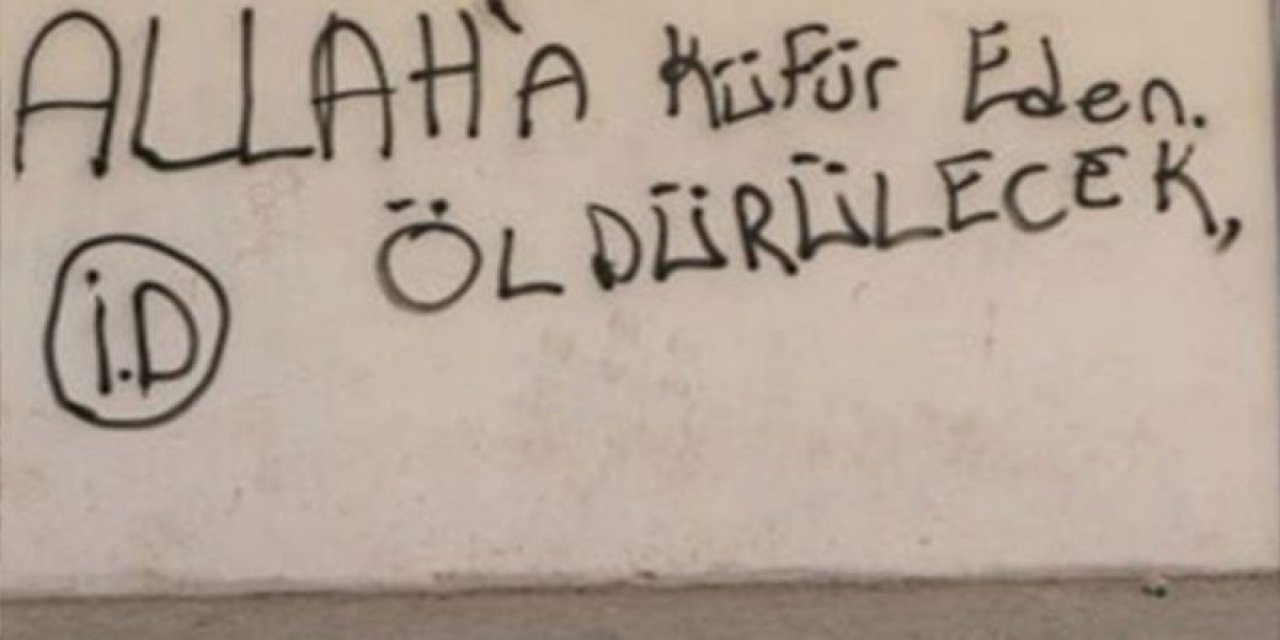 ALLAH'A Küfür Eden.
ÖLDÜRÜLECEK,
İ.D